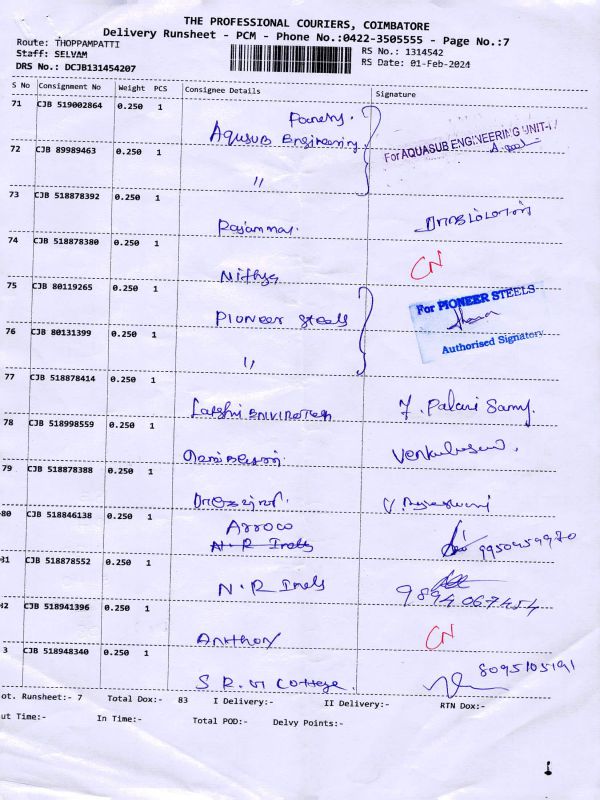 THE PROFESSIONAL COURIERS, COIMBATORE
Delivery Runsheet - PCM - Phone No.:0422-3505555 - Page No.:7
Route: THOPPAMPATTI
Staff: SELVAM
RS No.: 1314542
DRS No.: DCJB131454207
RS Date: 01-Feb-2024
S No Consignment No Weight PCS Consignee Details Signature
71 CJB 519002864 0.250 1
Aqusub Engineering
For AQUASUB ENGINEERING UNIT-I
72 CJB 89989463 0.250 1
"
73 CJB 518878392 0.250 1
Rajammal
74 CJB 518878380 0.250 1
Nithya CN
75 CJB 80119265 0.250 1
Pioneer Steels
For PIONEER STEELS
Authorised Signatory
76 CJB 80131399 0.250 1
"
77 CJB 518878414 0.250 1
Lakshmi ENVIROTech P. Palani Samy.
78 CJB 518998559 0.250 1
79 CJB 518878388 0.250 1
V. Rajeswari
80 CJB 518846138 0.250 1
Arroco
N.R Inds 9950459970
81 CJB 518878552 0.250 1
N.R Inds 9894067454
82 CJB 518941396 0.250 1
Anthony CN
3 CJB 518948340 0.250 1
8095105191
ot. Runsheet:- 7 Total Dox:- 83 I Delivery:- II Delivery:- RTN Dox:-
ut Time:- In Time:- Total POD:- Delvy Points:-